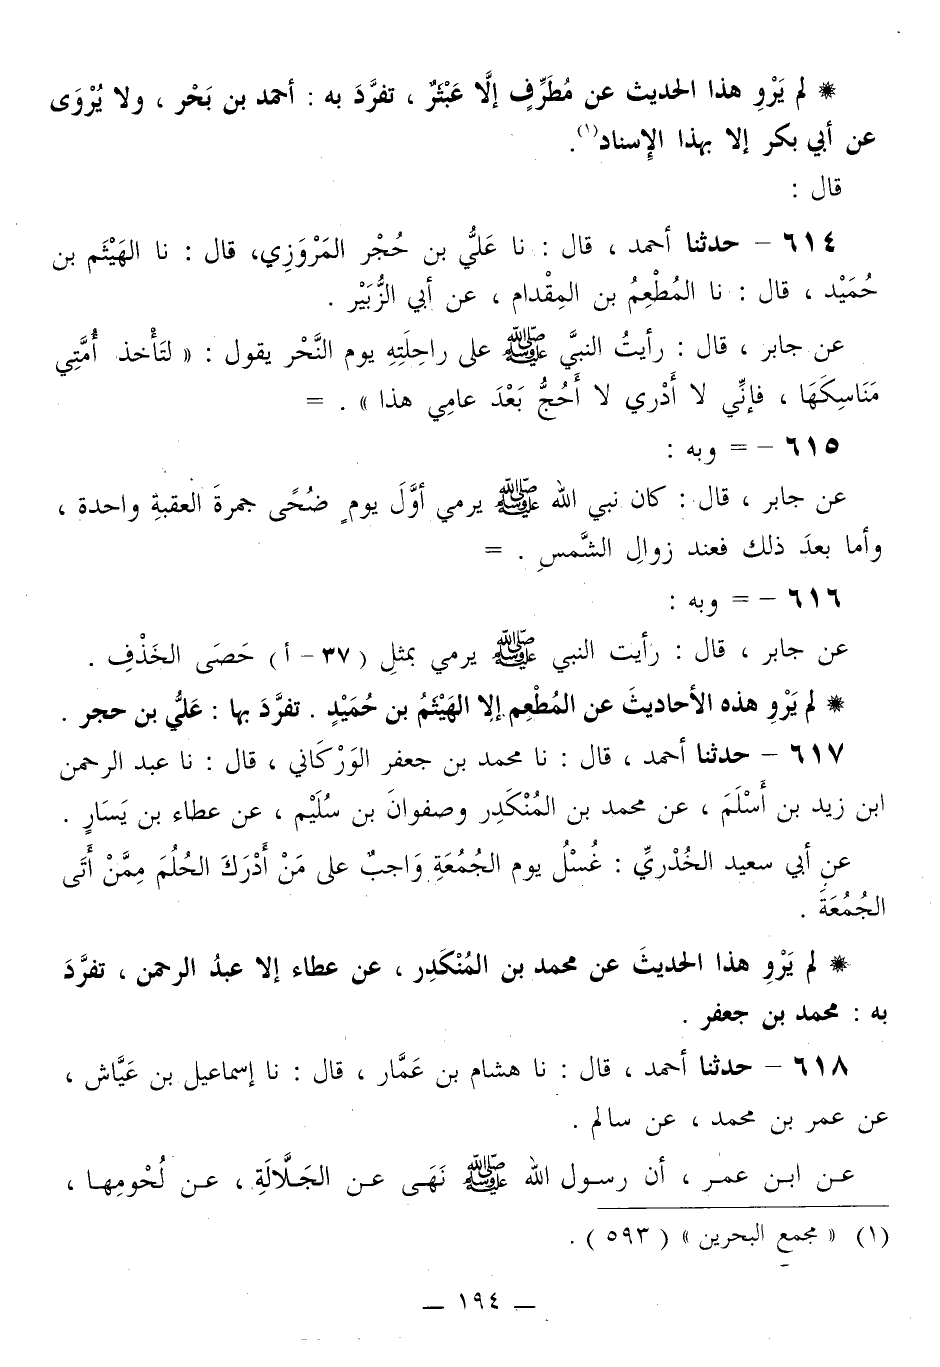 * لم يَرْوِ هذا الحديث عن مُطَرِّفٍ إلَّا عَبْثَرٌ ، تفرَّدَ به : أحمد بن بَحْر ، ولا يُرْوَى
عن أبي بكر إلا بهذا الإِسناد(١).
قال :
٦١٤ – حدثنا أحمد ، قال : نا عَليُّ بن حُجْر المَرْوَزِي، قال : نا الهَيْثَم بن
حُمَيْد ، قال : نا المُطْعِمُ بن المِقْدام ، عن أبي الزُّبَيْر .
عن جابر ، قال : رأيتُ النبيَّ ﷺ على راحِلَتِهِ يوم النَّحْر يقول : « لتَأْخذ أُمَّتِي
مَنَاسِكَهَا ، فإنِّي لا أَدْري لا أَحُجُّ بَعْدَ عامِي هذا » . =
٦١٥ – = وبه :
عن جابر ، قال : كان نبي الله ﷺ يرمي أوَّلَ يومٍ ضُحًى جمرةَ العقبةِ واحدة ،
وأما بعدَ ذلك فعند زوالِ الشَّمسِ . =
٦١٦ – = وبه :
عن جابر ، قال : رأيت النبي ﷺ يرمي بمثلِ ( ٣٧ – أ ) حَصَى الخَذْفِ .
* لم يَرْوِ هذه الأحاديثَ عن المُطْعِم إلا الهَيْثَمُ بن حُمَيْدٍ . تفرَّدَ بها : عَليُّ بن حجر .
٦١٧ – حدثنا أحمد ، قال : نا محمد بن جعفر الوَرْكَاني ، قال : نا عبد الرحمن
ابن زيد بن أَسْلَمَ ، عن محمد بن المُنْكَدِر وصفوانَ بن سُلَيْم ، عن عطاء بن يَسَارٍ .
عن أبي سعيد الخُدْريِّ : غُسْلُ يوم الجُمُعَةِ وَاجبٌ على مَنْ أَدْرَكَ الحُلُمَ مِمَّنْ أَتَى
الجُمُعَةَ .
* لم يَرْوِ هذا الحديثَ عن محمد بن المُنْكَدِر ، عن عطاء إلا عبدُ الرحمن ، تفرَّدَ
به : محمد بن جعفر .
٦١٨ – حدثنا أحمد ، قال : نا هشام بن عَمَّار ، قال : نا إسماعيل بن عَيَّاش ،
عن عمر بن محمد ، عن سالم .
عن ابن عمر ، أن رسول الله ﷺ نَهَى عن الجَلَّالَةِ ، عن لُحْومِها ،
(١) « مجمع البحرين » ( ٥٩٣ ) .
— ١٩٤ —